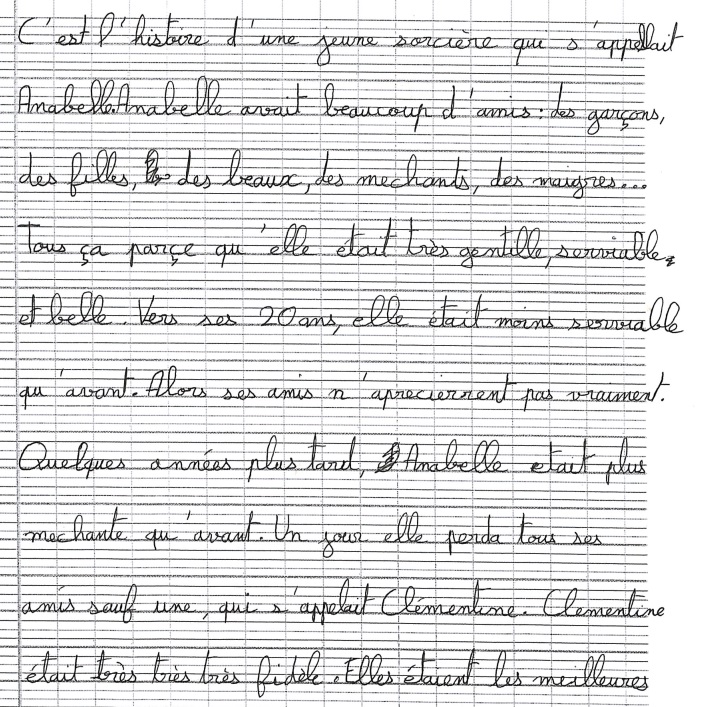 C'est l'histoire d'une jeune sorcière qui s'appellait
Anabelle. Anabelle avait beaucoup d'amis : des garçons,
des filles, des beaux, des mechants, des maigres...
Tous ça parçe qu'elle était très gentille, serviable,
et belle. Vers ses 20 ans, elle était moins serviable
qu'avant. Alors ses amis n'apreciernent pas vraiment.
Quelques années plus tard, Anabelle etait plus
mechante qu'avant. Un jour elle perda tous ses
amis sauf une, qui s'appelait Clémentine. Clementine
était très très très fidèle. Elles étaient les meilleures